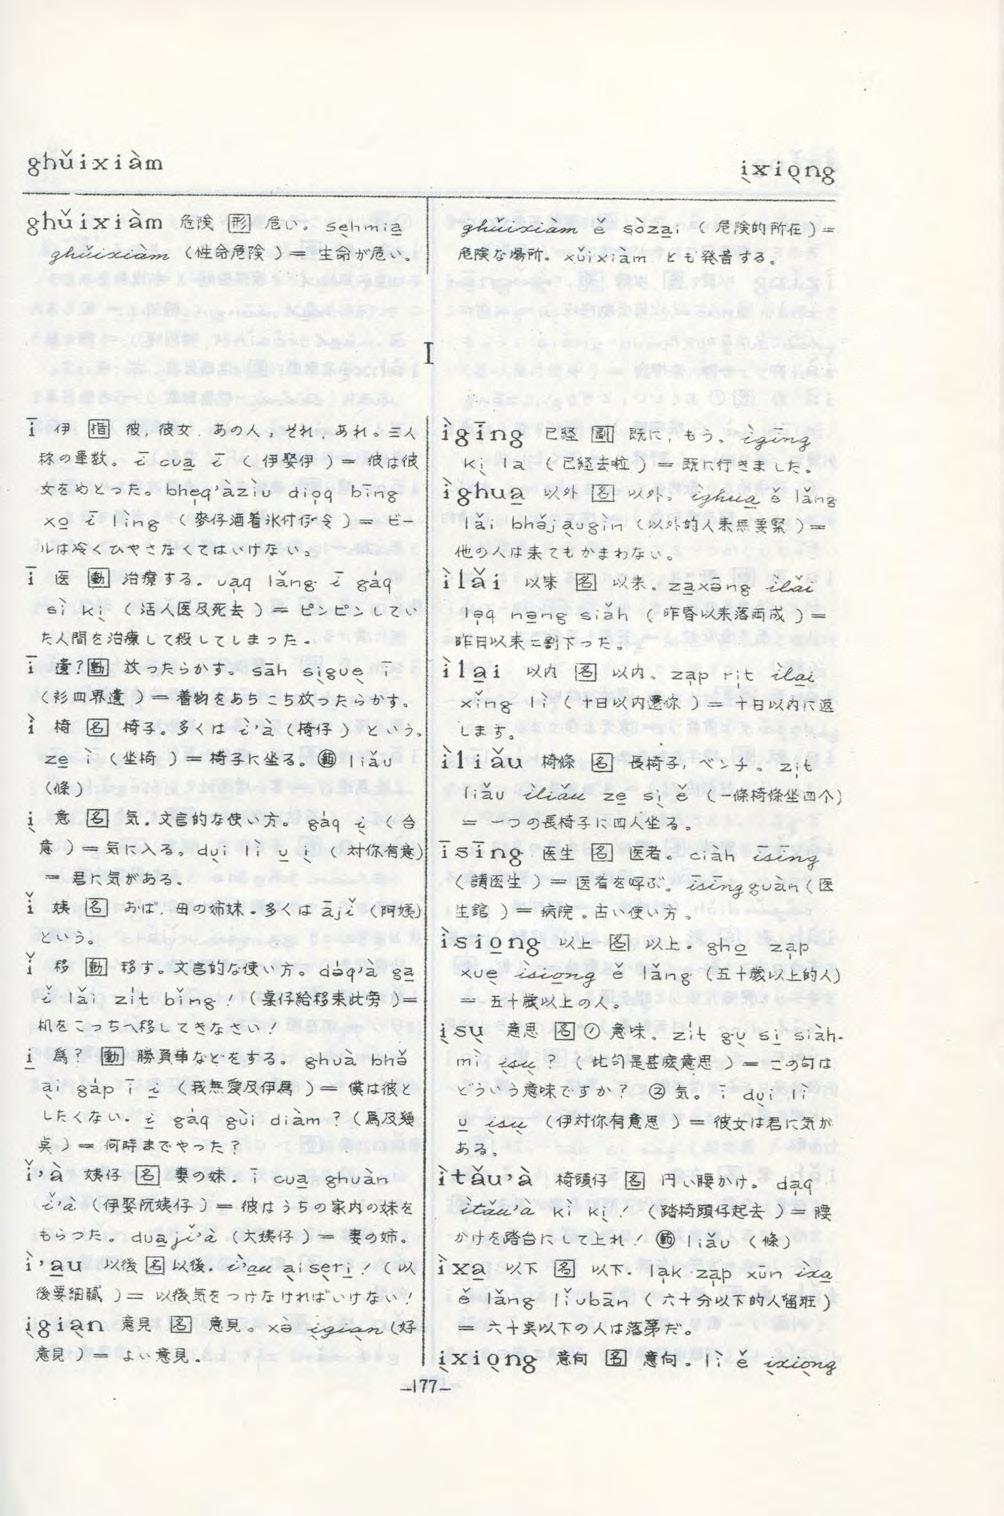 ghŭixiàm
i̖xiọng
ghŭixiàm 危険 形 危い。sehmia̱
ghŭixiàm (性命危険) = 生命が危い。
ghŭixiàm ĕ sòza̱i (危険的所在) =
危険な場所。xŭixiàm とも発音する。
I
ī 伊 指 彼,彼女,あの人,それ,あれ。三人
称の単数。ī cua̱ ī (伊娶伊) = 彼は彼
女をめとった。bhe̍q'àziù dio̍q bīng
xo̱ ī lìng (麥仔酒着氷付伊冷) = ビー
ルは冷くひやさなくてはいけない。
ī 医 動 治療する。ua̍q lăng ī ga̍q
sì ki̖ (活人医及死去) = ピンピンしてい
た人間を治療して殺してしまった。
ī 遺? 動 放ったらかす。sāh si̖gue̖ ī
(衫四界遺) = 着物をあちこち放ったらかす。
ì 椅 名 椅子。多くは ì'à (椅仔) という。
ze̱ ì (坐椅) = 椅子に坐る。動 liău
(條)
i̖ 意 名 気。文言的な使い方。ga̍q i̖ (合
意) = 気に入る。du̖i lì u̱ i̖ (対你有意)
= 君に気がある。
ĭ 姨 名 おば,母の姉妹。多くは ājĭ (阿姨)
という。
ĭ 移 動 移す。文言的な使い方。dòq'à ga̱
ĭ lăi zi̍t bĭng! (桌仔給移来此旁) =
机をこっちへ移してきなさい!
i̱ 為? 動 勝負事などをする。ghuà bhŏ
a̖i ga̍p ī i̱ (我無愛及伊為) = 僕は彼と
したくない。i̱ gáq gùi diàm? (為及幾
点) = 何時までやった?
ĭ'à 姨仔 名 妻の妹。ī cua̱ ghuàn
ĭ'à (伊娶阮姨仔) = 彼はうちの家内の妹を
もらった。dua̱jĭ'à (大姨仔) = 妻の姉。
ì'a̱u 以後 名 以後。ì'a̱u a̖i se̖ri̱! (以
後要細膩) = 以後気をつけなければいけない!
i̖gia̖n 意見 名 意見。xò i̖gia̖n (好
意見) = よい意見。
ìgīng 已経 副 既に,もう。ìgīng
ki̖ la (已経去啦) = 既に行きました。
ìghua̱ 以外 名 以外。ìghua̱ ĕ lăng
lăi bhŏja̖ugìn (以外的人来無要緊) =
他の人は来てもかまわない。
ìlăi 以来 名 以来。za̱xāng ìlăi
lo̍q ne̱ng siăh (昨昏以来落両成) =
昨日以来二割下った。
ìla̱i 以内 名 以内。za̍p ri̍t ìla̱i
xĭng lì (十日以内還你) = 十日以内に返
します。
ìliău 椅條 名 長椅子,ベンチ。zi̍t
liău ìliău ze̱ si̖ ĕ (一條椅條坐四个)
= 一つの長椅子に四人坐る。
īsīng 医生 名 医者。ciàh īsīng
(請医生) = 医者を呼ぶ。īsīngguàn (医
生館) = 病院。古い使い方。
ìsio̱ng 以上 名 以上。gho̱ za̍p
xue̖ ìsio̱ng ĕ lăng (五十歳以上的人)
= 五十歳以上の人。
i̖su̖ 意思 名 ① 意味。zi̍t gu̖ si̱ siàh-
mi̍ i̖su̖? (此句是甚麼意思) = この句は
どういう意味ですか? ② 気。ī du̖i lì
u̱ i̖su̖ (伊対你有意思) = 彼女は君に気が
ある。
ìtău'à 椅頭仔 名 円い腰かけ。da̍q
ìtău'à kì ki̖! (踏椅頭仔起去) = 腰
かけを踏台にして上れ! 動 liău (條)
ìxa̱ 以下 名 以下。la̍k za̍p xūn ìxa̱
ĕ lăng lĭubān (六十分以下的人留班)
= 六十点以下の人は落第だ。
i̖xio̖ng 意向 名 意向。lì ĕ i̖xio̖ng
—177—